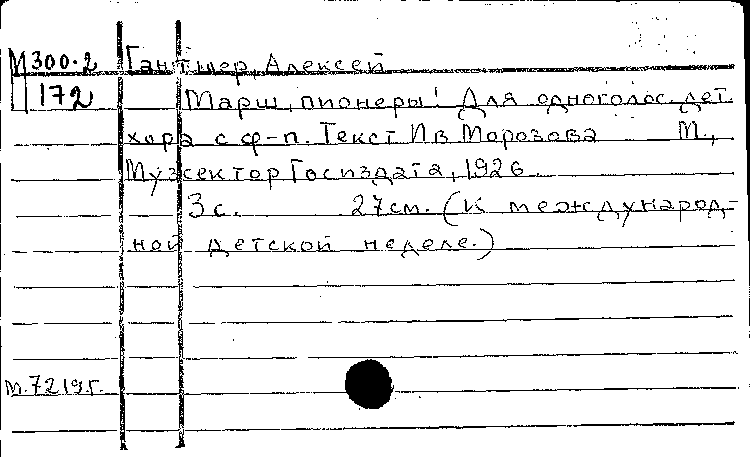 М300.2 Гантшер, Алексей
172 Марш, пионеры! Для одноголос. дет.
хора с ф-п. Текст Ив Морозова М.,
Музсектор Госиздата, 1926
3с. 27см. (К международ-
ной детской неделе.)